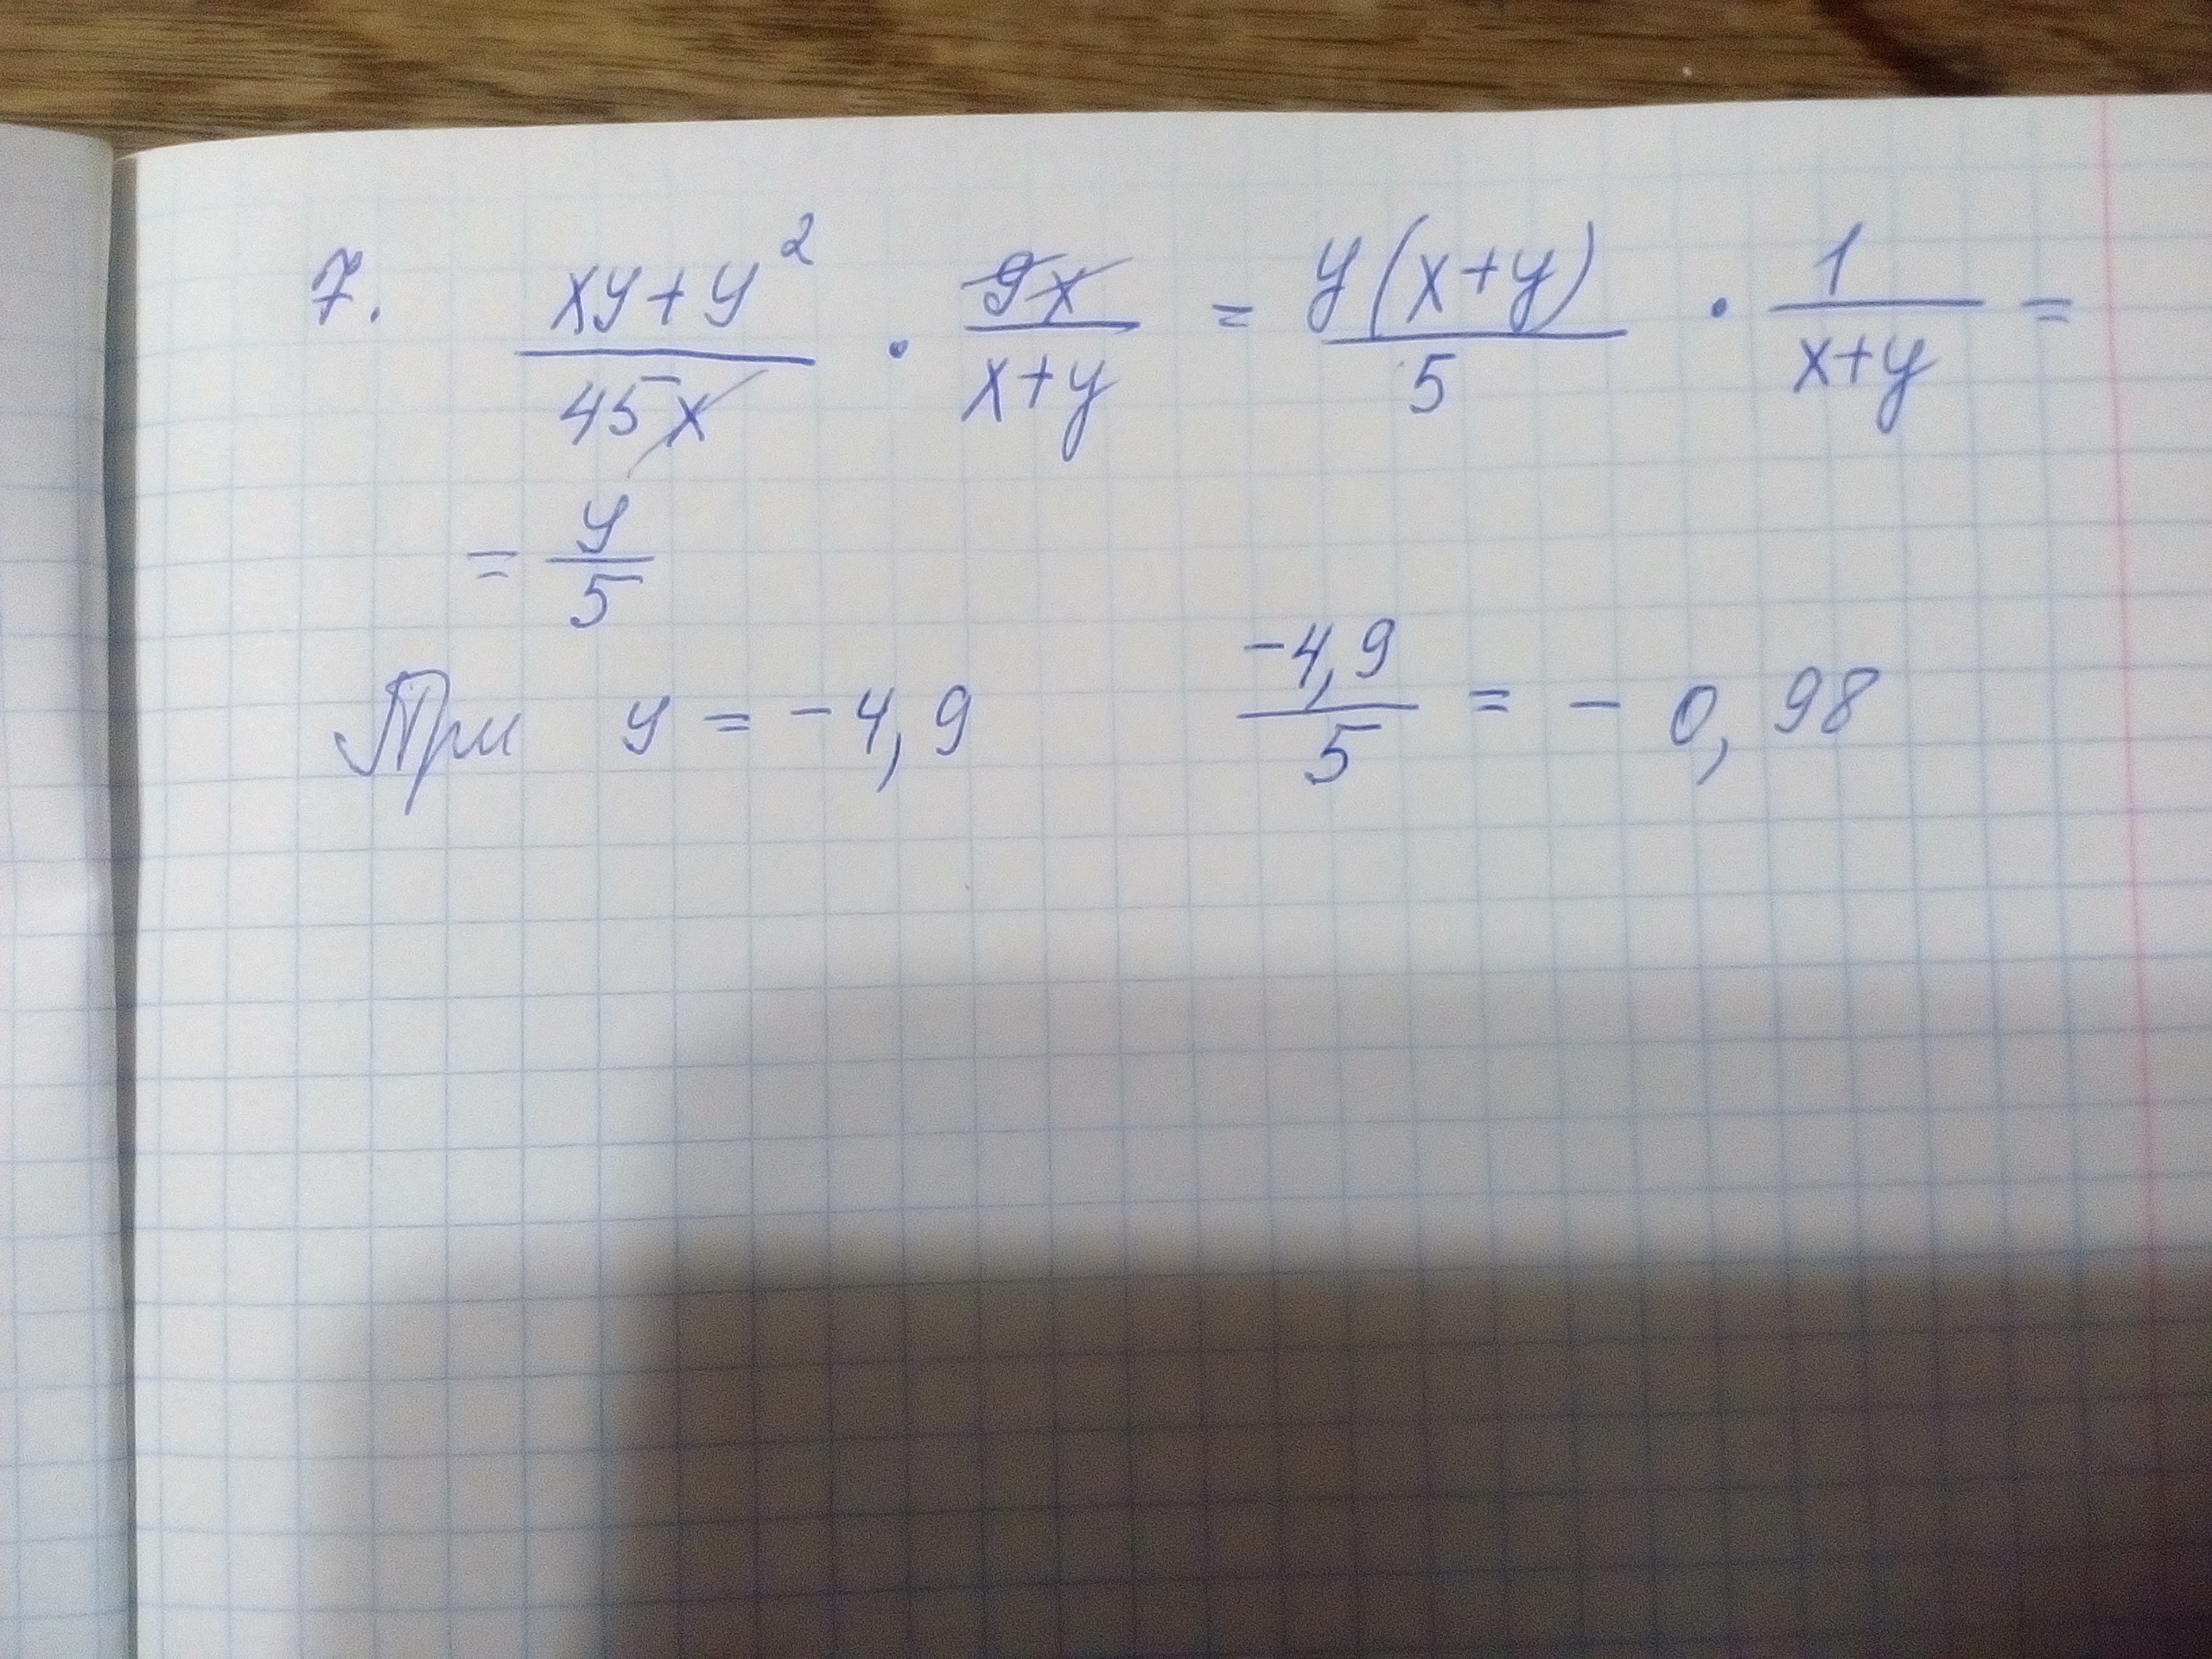 7. (xy+y²)/(45x) · (9x)/(x+y) = (y(x+y))/5 · 1/(x+y) =
= y/5
При y = -4,9 (-4,9)/5 = - 0,98